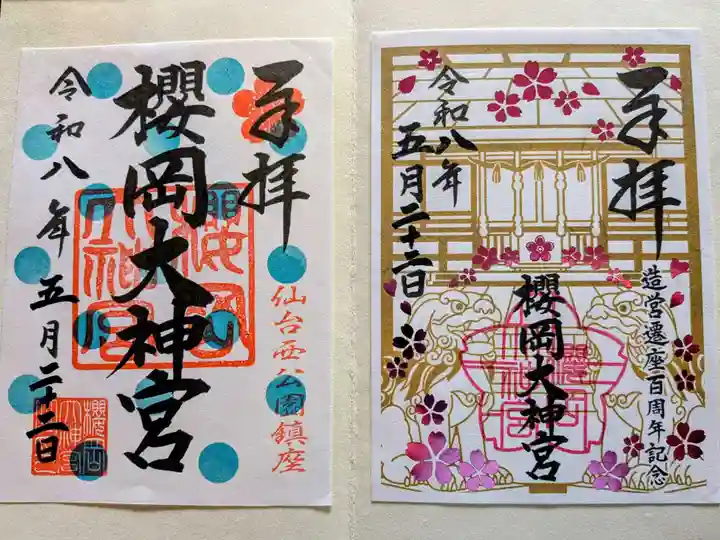 奉拝
櫻岡大神宮
仙台西公園鎮座
令和八年五月二十三日
奉拝
造営遷座百周年記念
櫻岡大神宮
令和八年
五月二十三日